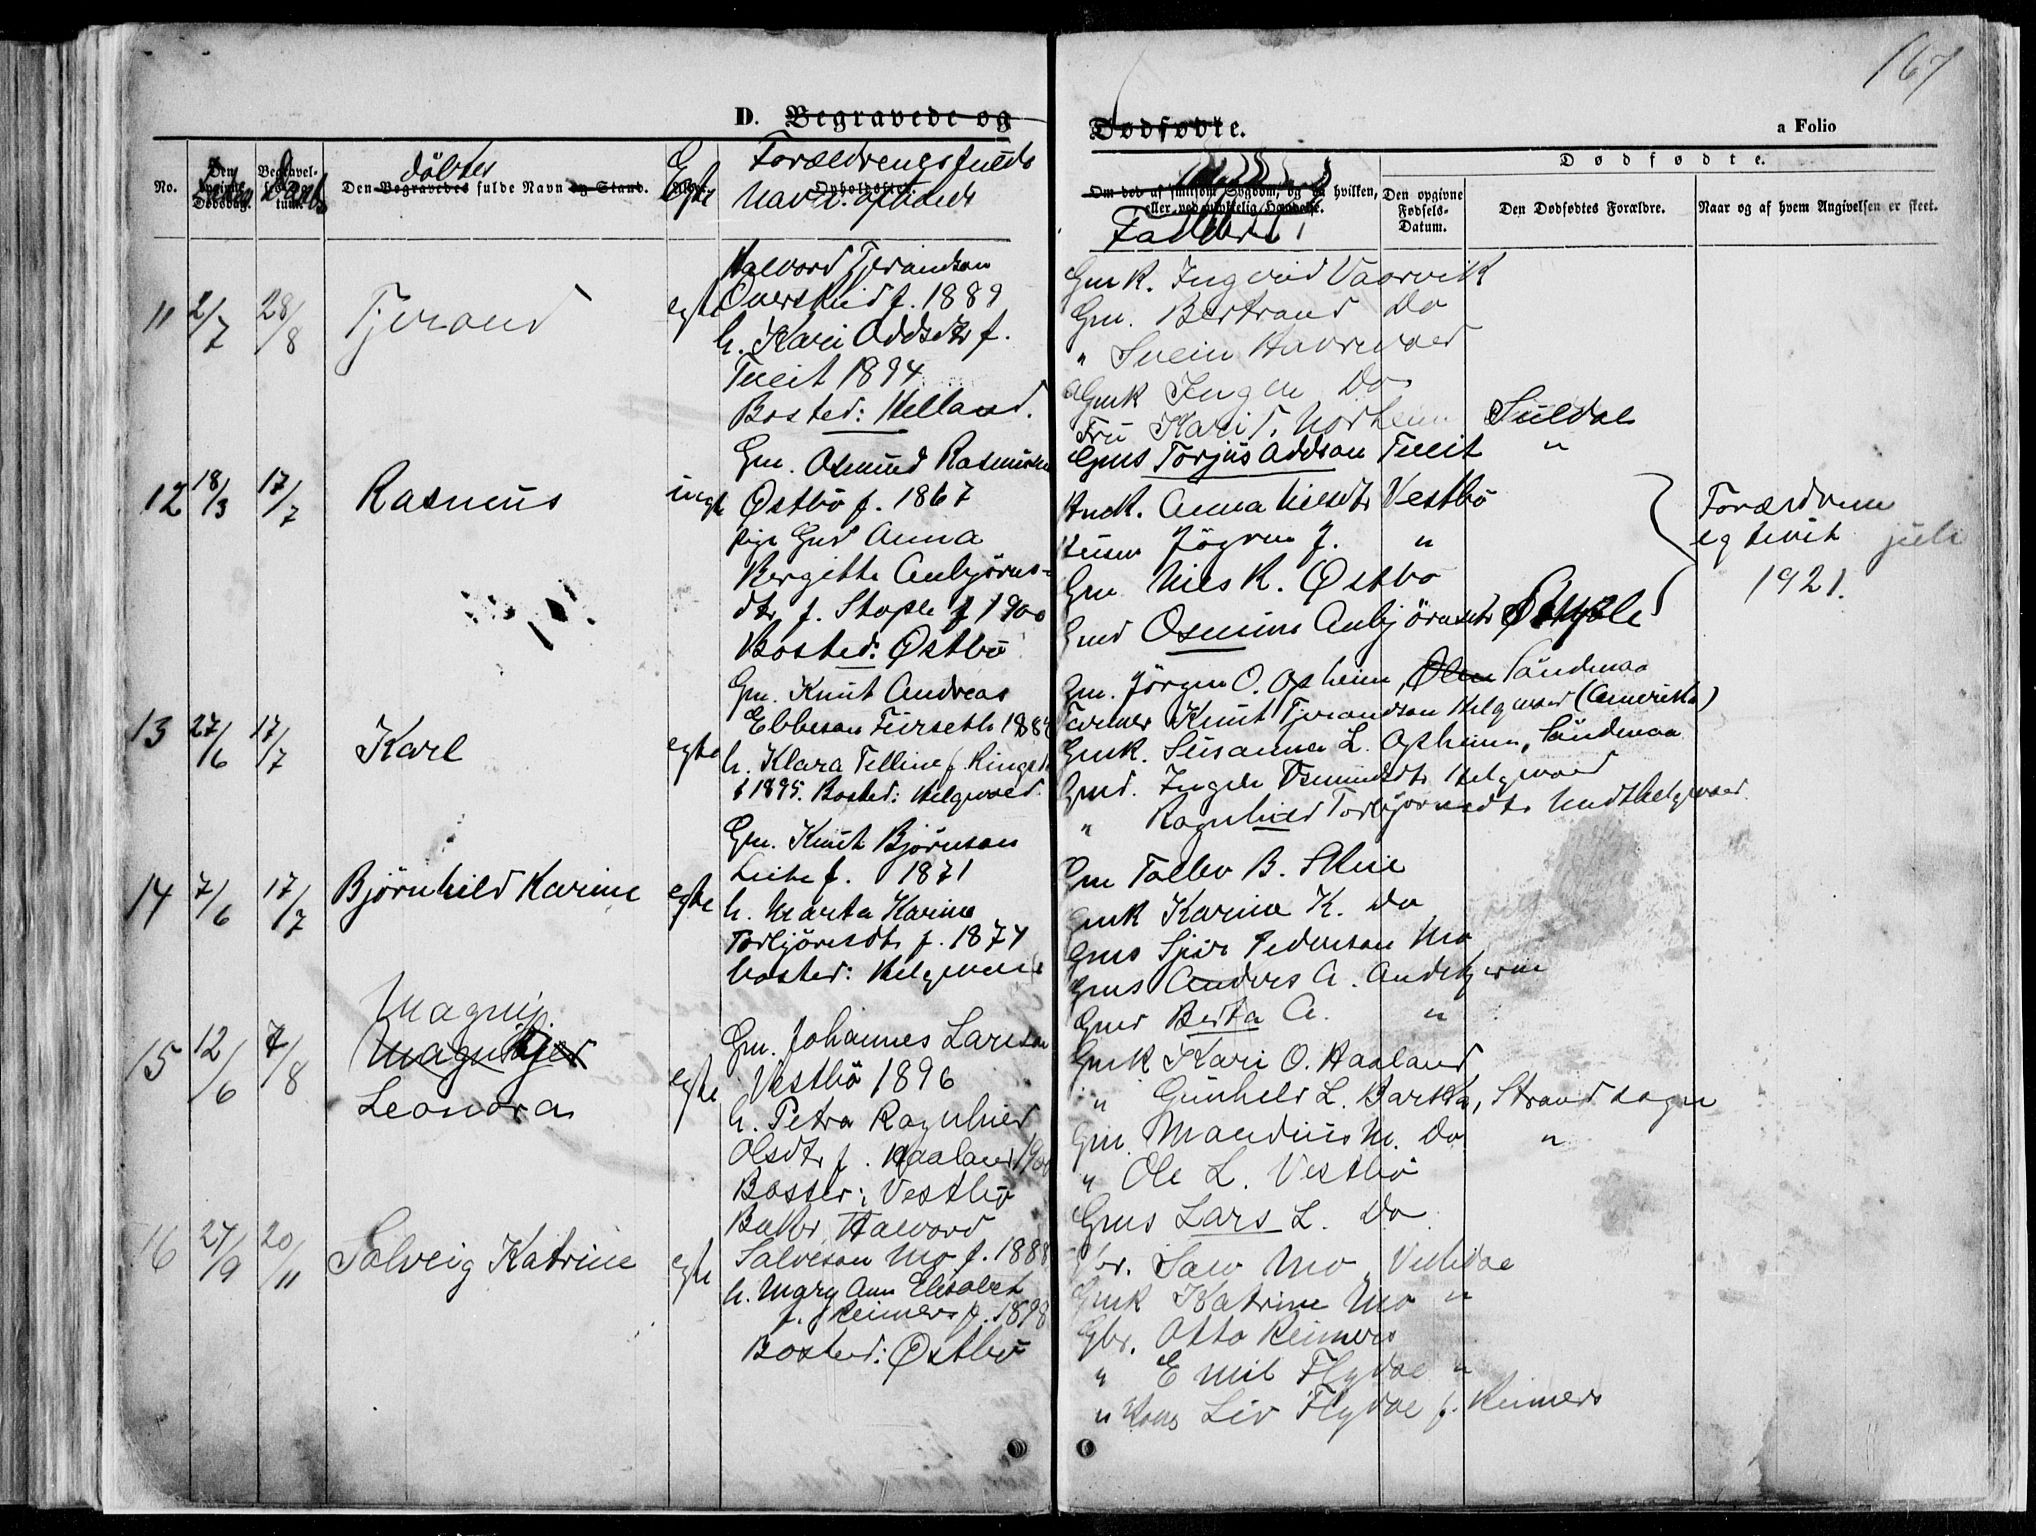 167
D. Begravede og
Dødfødte.
a Folio
No.
Den opgivne Dødsdag.
Begravelsesdatum.
døbtes
Den Begravedes fulde Navn og Stand.
Egte
Forældrenes fulde
Navn.
Opholdssted.
Om død af smitsom Sygdom, og da hvilken,
eller ved ulykkelig Hændelse.
Faddere
Den opgivne
Fødsels-
Datum.
Dødfødte.
Den Dødfødtes Forældre.
Naar og af hvem Angivelsen er skeet.
11 2/7 28/8 Tjerand egte
Halvord Tjerandson
Qverskud f. 1889
h. Kari Oddsdtr f.
Tveit 1894
Bosted: Helland.
Gmk. Ingerid Vaarvik
Gm. Bertrand Do
" Svein Havrevoed
Gmk Inger Do
Fru Kari T. Norheim Suldal
Gms Torjus Addson Tveit "
12 18/3 17/7 Rasmus uegte
Gm. Osmund Rasmussen
Østbø f. 1867
pige Gmd Anna
Bergitte Anbjørns-
dtr f. Stople f 1900
Bosted: Østbø
Anna Nilsdtr Vestbø
Jögren J. "
Gm Nils R. Østbø
Gmd Osmund Anbjörnsdtr Stople
Forældrene
egteviet juli
1921.
13 27/6 17/7 Karl egte
Gm. Knut Andreas
Ebbeson
h. Klara Telline f. Ringsd
f 1895. Bosted: Helgevoed.
Gm. Jörgen O. Opheim, Ølen Sandenaa
Farmer Knut Tjerandson Helgevoed (Amerika)
Gmk. Susanna L. Opheim, Sandenaa
Gmd. Inger Osmundsdtr Helgevoed
" Ragnhild Torbjörnsdtr Midthelgevoed
14 7/6 17/7 Björnhild Karine egte
Gm. Knut Björnson
Leite f. 1871
h. Marta Karine
Torbjörnsdtr f. 1874
bosted: Helgevoed
Gm Tollev B. Skeie
Gmk Karina K. Do
Gms Sjur Pederson Mo
Gms Anders A.
Gmd Berta A. "
15 12/6 7/8
Magny
Magnhjer
Leonora
egte
Gm. Johannes Larson
Vestbö 1896
h. Petra Ragnhild
Olsdtr f. Haaland 1900
Bosted: Vestbø
Gmk Kari O. Haaland
" Gunhild L. Barka, Strand sogn
Gm. Mandius M. Do "
" Ole L. Vestbö
Gms Lars L. Do
16 27/9 20/11 Solveig Katrine egte
Halvord
Salveson Mo f. 1888
h. Mary Ann Elisabet
f. Reimers f. 1898
Bosted: Østbø
Gbr. Salv Mo
Gmk Katrine Mo "
Gbr. Otto Reimers
" Emil Flydal "
" Kone Liv Flydal f. Reimers